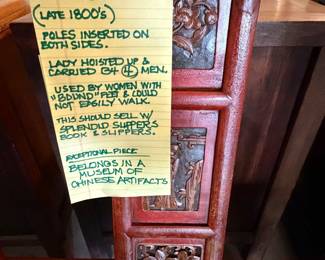 (LATE 1800's)
POLES INSERTED ON
BOTH SIDES.
LADY HOISTED UP &
CARRIED BY 4 MEN.
USED BY WOMEN WITH
"BOUND" FEET & COULD
NOT EASILY WALK.
THIS SHOULD SELL W/
SPLENDID SLIPPERS
BOOK & SLIPPERS.
EXCEPTIONAL PIECE
BELONGS IN A
MUSEUM OF
CHINESE ARTIFACTS